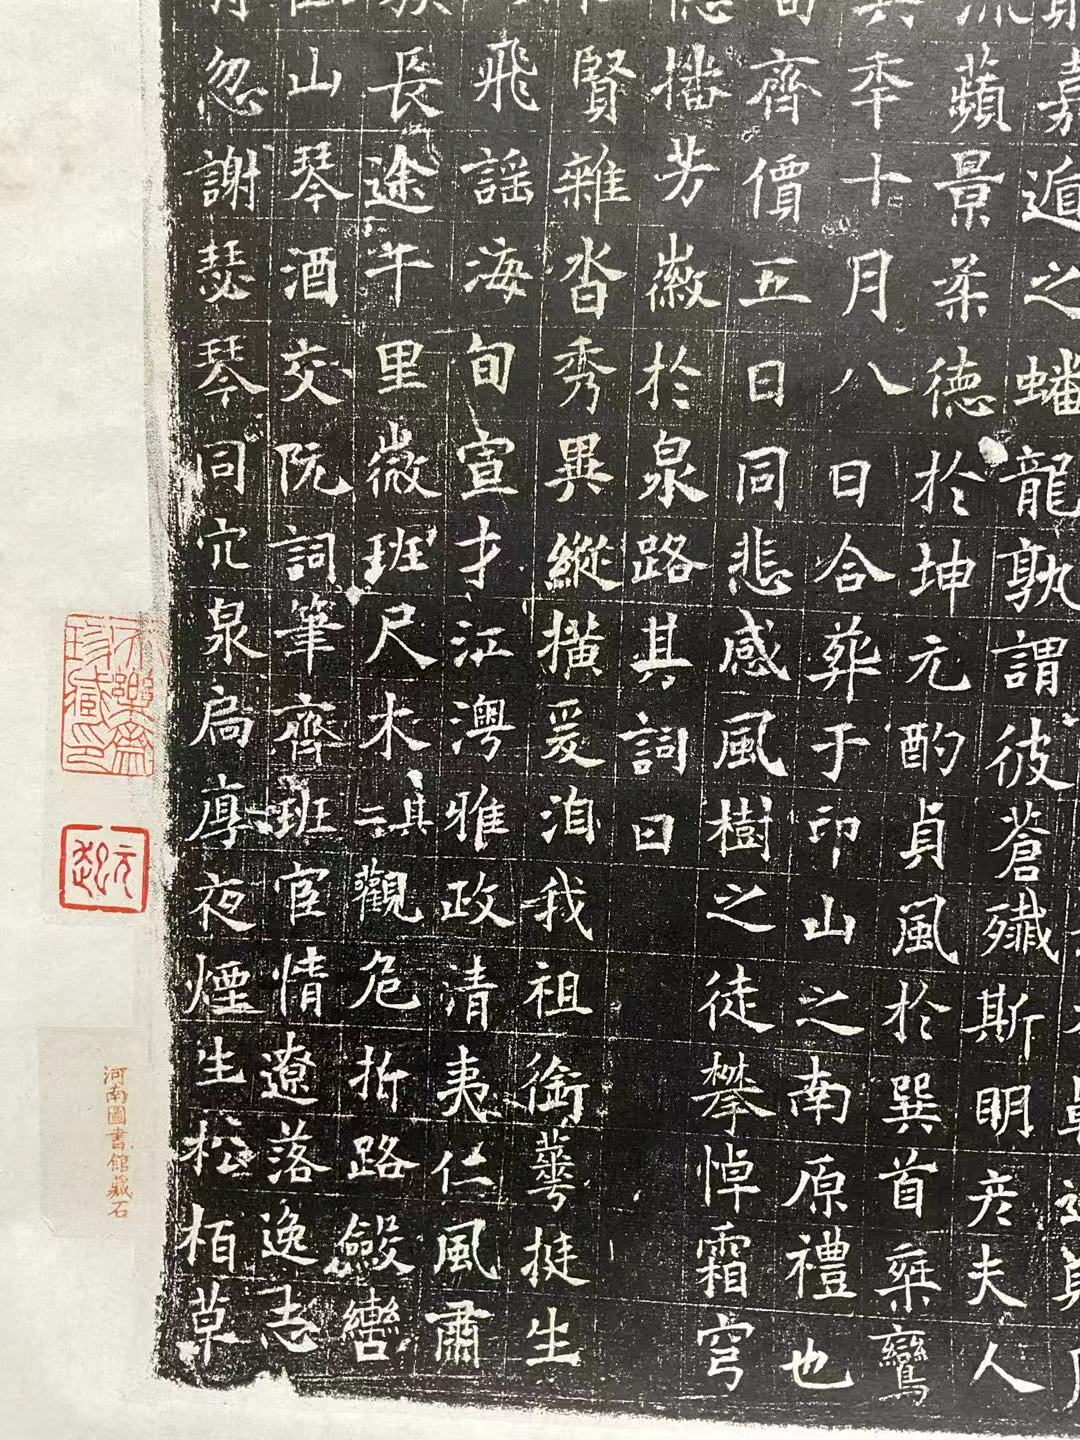 嘉遁之蟠龍孰謂彼蒼殲斯明彦夫人
流蘋景柔德於坤元酌貞風於巽首乘鸞
其年十月八日合葬于邙山之南原禮也
齊價五日同悲感風樹之徒攀悼霜穹
播芳徽於泉路其詞曰
賢雜沓秀異縱横爰洎我祖銜華挺生
飛謡海甸宣才江澳雅政清夷仁風肅
長途午里微班尺木一淇觀危折路毀轡
山琴酒交阮詞筆齊班宦情遼落逸志
忽謝瑟琴同穴泉扃厚夜煙生松栢草
珍藏印
河南圖書館藏石